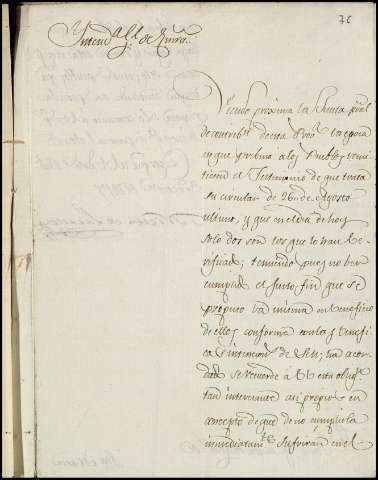 76
Intend.
Viendo proxima la Junta pral
de contribn. de esta Prov. la epoca
en que previno a los Pueblos remi-
tiesen el Testimonio de que trata
su circular de 26 de Agosto
ultimo, y que en el dia de hoy
solo dos son los que lo han ve-
rificado; temiendo pues no ver
cumplido el justo fin que se
propuso la misma en beneficio
de ellos, conforme con las
intencion. de S.M.; ha acor-
dado se recuerde á VV esta oblign.
tan interesante asi propio en
concepto de que de no cumplirla
inmediatamte. sufriran en el